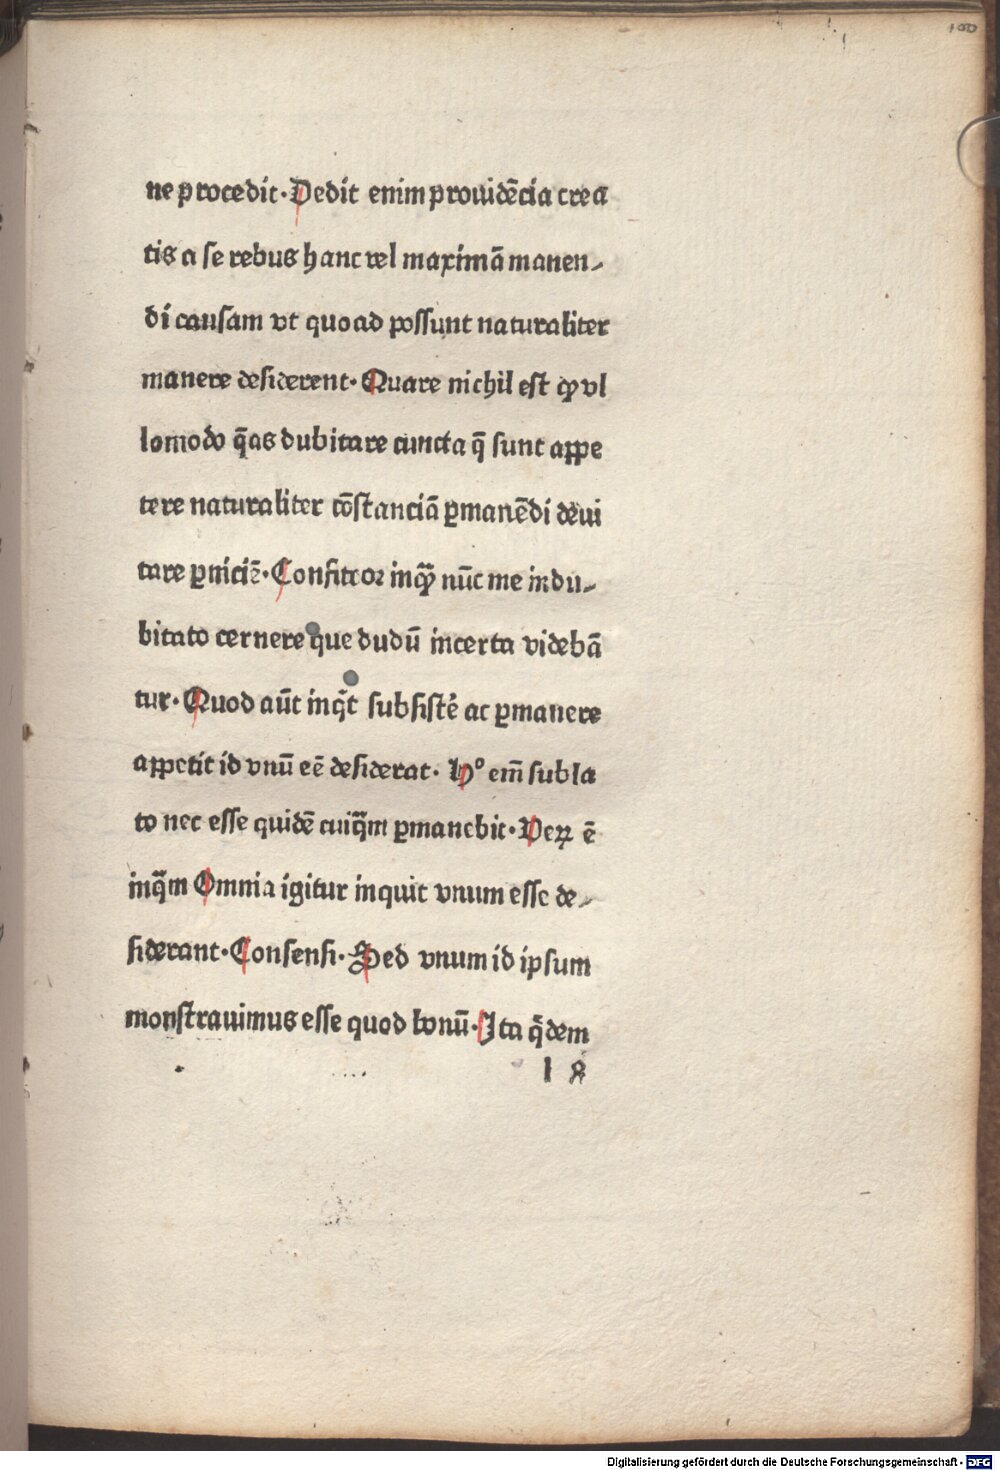 100
ne procedit· Dedit enim prouidēcia crea
tis a se rebus hanc vel maximā manen⸗
di causam vt quoad possunt naturaliter
manere desiderent· Quare nichil est ꝙ vl
lomodo q̄as dubitare cuncta q̄ sunt appe
tere naturaliter cōstanciā ꝑmanēdi deui
tare ꝑniciē· Confiteor inqꝫ̄ nūc me indu⸗
bitato cernere que dudū incerta videbā
tur· Quod aūt inq̄t subsistē ac ꝑmanere
appetit id vnū eē desiderat· Hͦ em̄ subla
to nec esse quidē cuiq̄m ꝑmanebit· Veꝝ ē
inq̄m Omnia igitur inquit vnum esse de⸗
siderant· Consensi· Sed vnum id ipsum
monstrauimus esse quod bonū· Ita q̄dem
l 8
Digitalisierung gefördert durch die Deutsche Forschungsgemeinschaft - DFG